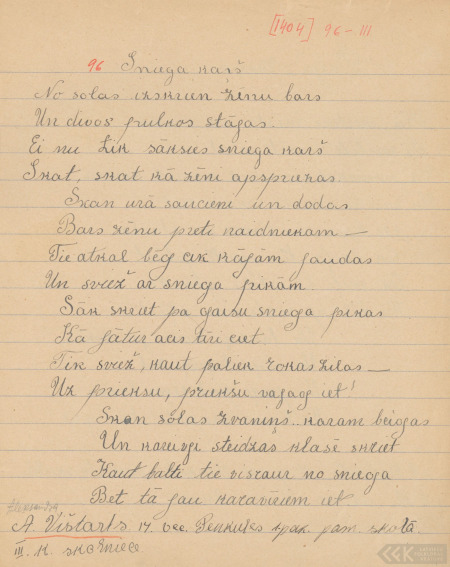 [1404] 96-III
96 Sniega karš
No solas izskrien zēnu bars
Un divos pulkos stājas.
Ei nu tik sāksies sniega karš
Skat, skat kā zēni apspriežas.
Skan urā saucieni un dodas
Bars zēnu preti naidniekam —
Tie atkal bēg cik kājām jaudas
Un sviež ar sniega pikām.
Sāk skriet pa gaisu sniega pikas
Kā jātur acis tiri ciet
Tik sviež, kaut paliek rokas zilas —
Uz priekšu, priekšu vajag iet!
Skan solas zvaniņš.. karam beigas
Un kareivji steidzas klasē skriet
Kaut balti tie visraur no sniega
Bet tā jau karavīriem iet.
A. Vištarts 17. vec. Penkules 6pak. pam. skola
III. kl. skolniece